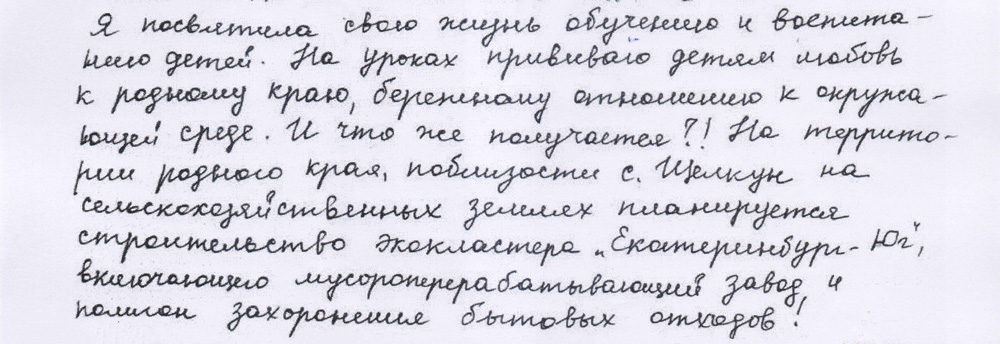 Я посвятила свою жизнь обучению и воспита-
нию детей. На уроках прививаю детям любовь
к родному краю, бережному отношению к окружа-
ющей среде. И что же получается?! На террито-
рии родного края, поблизости с. Щелкун на
сельскохозяйственных землях планируется
строительство экокластера „Екатеринбург-Юг",
включающего мусороперерабатывающий завод и
полигон захоронения бытовых отходов!